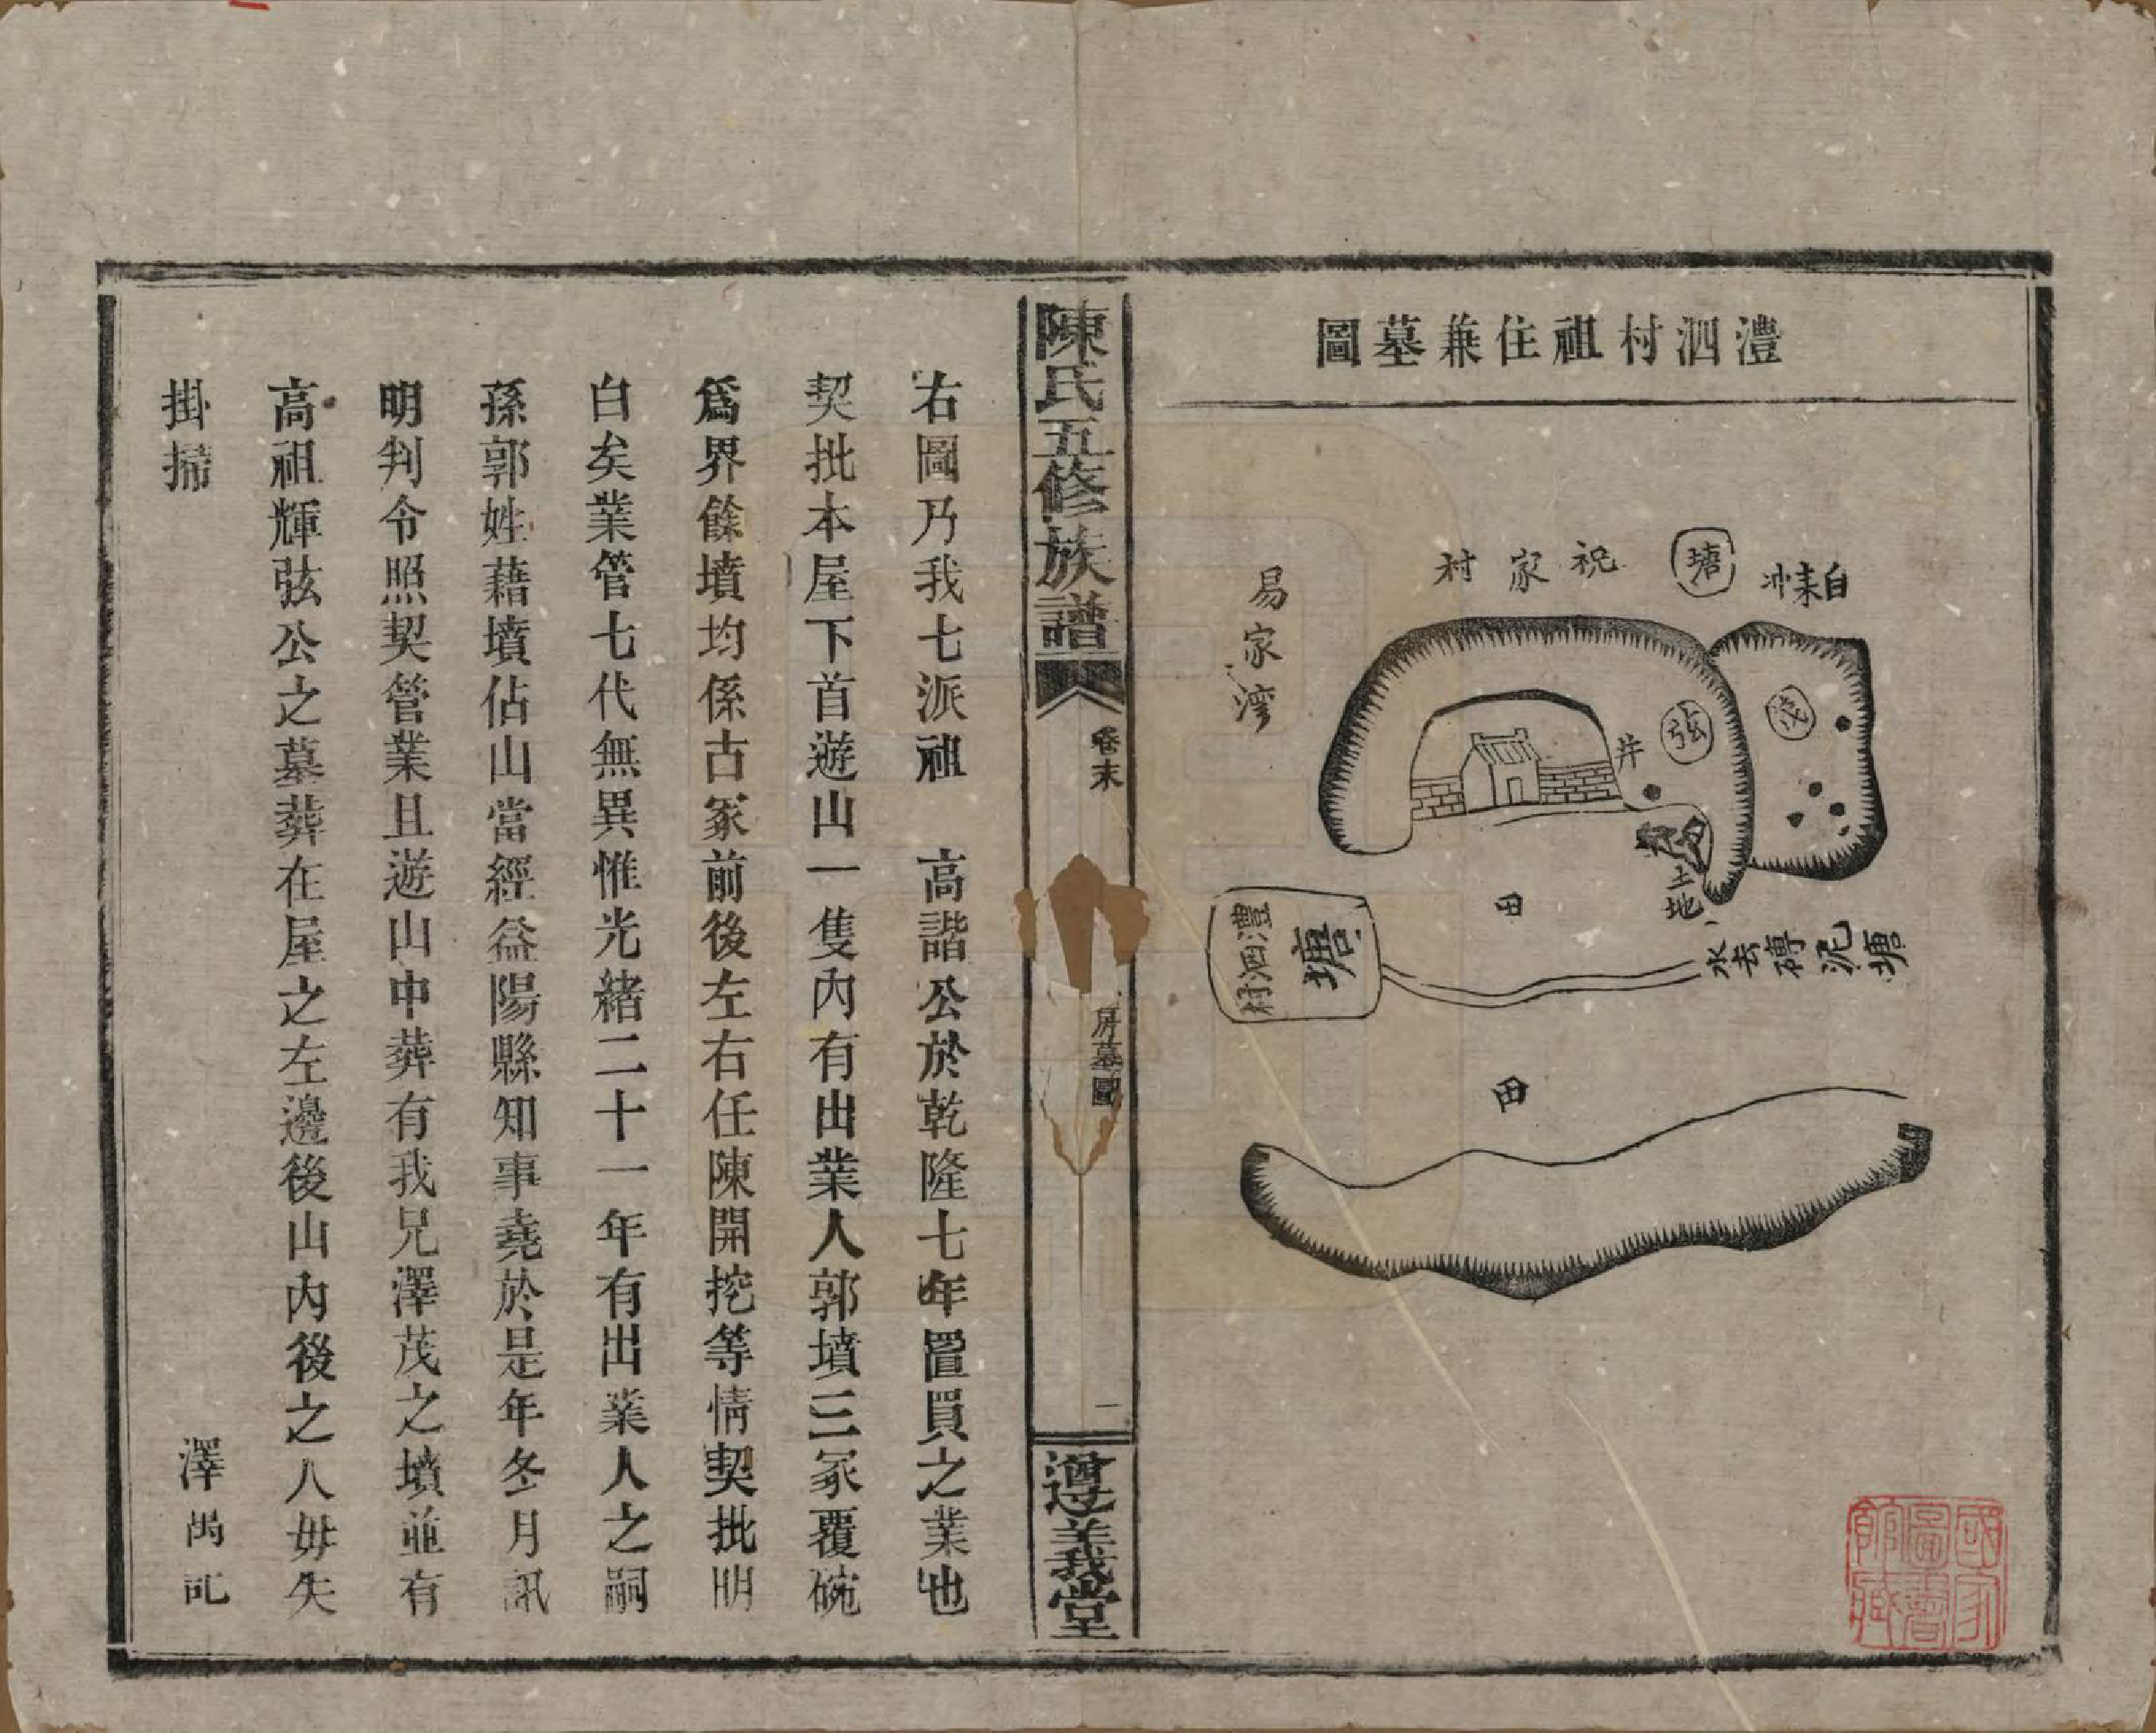 澧泗村祖住兼墓圖
自来冲
塘
祝家村
易家湾
茂
弦
井
土地
田
塘泥磚去水
澧泗村
塘
田
國家圖書館藏
陳氏五修族譜
卷末
房墓圖
一
遵義堂
右圖乃我七派祖　高諧公於乾隆七年置買之業也
契批本屋下首遊山一隻內有出業人郭墳三冢覆碗
爲界餘墳均係古冢前後左右任陳開挖等情契批明
白矣業管七代無異惟光緒二十一年有出業人之嗣
孫郭姓藉墳佔山當經益陽縣知事堯於是年冬月訊
明判令照契管業且遊山中葬有我兄澤茂之墳並有
高祖輝弦公之墓葬在屋之左邊後山內後之人毋失
掛掃
澤禼記